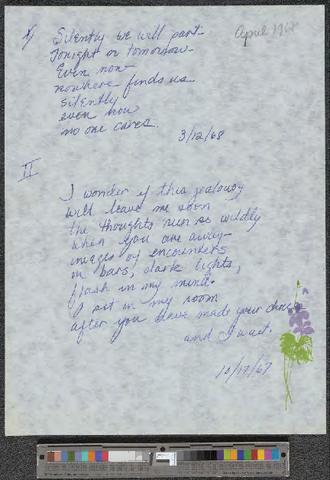 I) Silently we will part
April 1968
Tonight or tomorrow
Even now
nowhere finds us
silently
even now
no one cares.
3/12/68
II
I wonder if this jealousy
will leave me soon
the thoughts run so wildly
when you are away—
images of encounters
in bars, dark lights,
flash in my mind.
I sit in my room
after you have made your choice
and I wait.
10/17/67